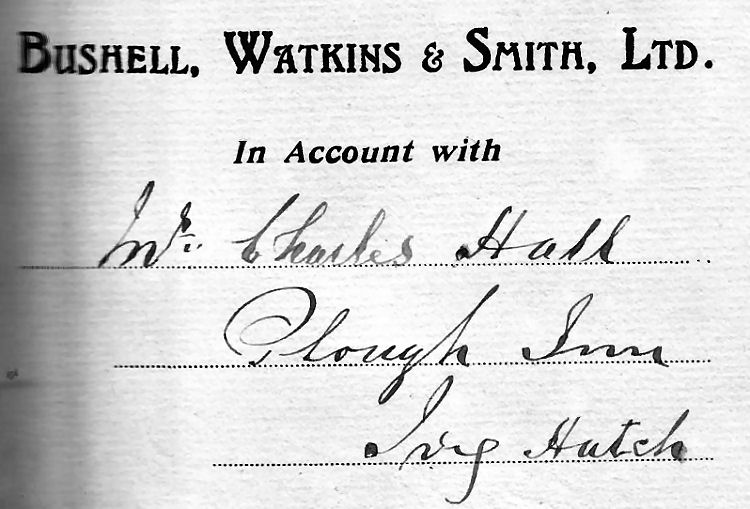 BUSHELL, WATKINS & SMITH, LTD.
In Account with
Mr. Charles Hall
Plough Inn
Ivy Hatch